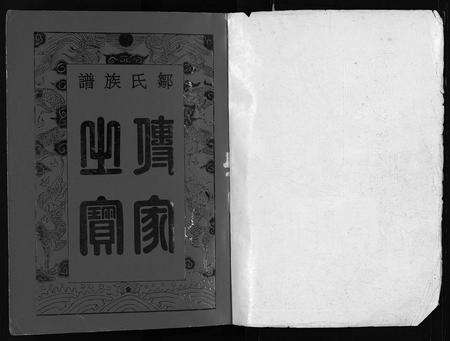 鄒氏族譜
傳家
之寶